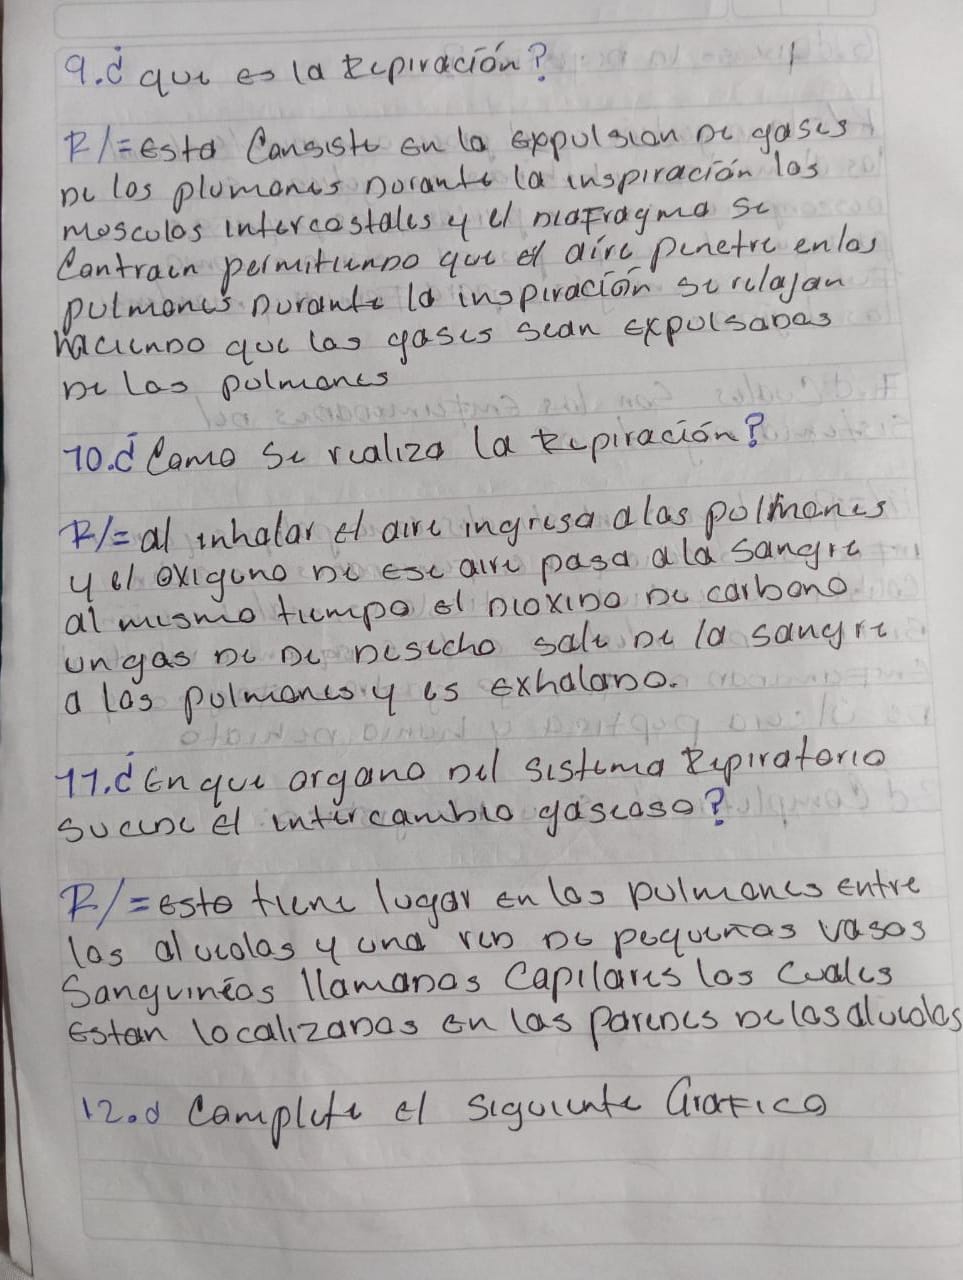 9.¿ que es la Repiración?
R/= esto Consiste en la expulsion De gases
De los plumones Dorante la inspiración los
moscolos intercostales y el DiaFragma se
Contraen permitienDo que el aire penetre en los
pulmones Durante la inspiración se relajan
hacienDo que los gases sean expolsaDos
De Los polmones
10.¿ Como Se realiza la Repiración?
R/= al inhalar el aire ingresa a los polmones
y el oxigeno De ese aire pasa a la sangre
al mismo tiempo el DioxiDo De carbono
un gas De De Desecho sale De la sangre
a los polmones y es exhalaDo.
11.¿ En que organo Del sistema Repiratorio
SuceDe el intercambio gaseoso?
R/= esto tiene lugar en los pulmones entre
los alveolos y una reD De pequenos vasos
Sanguineos llamaDos Capilares los Cuales
Estan localizaDos en las pareDes De los alveolos
12.¿ Complete el siguiente GraFico